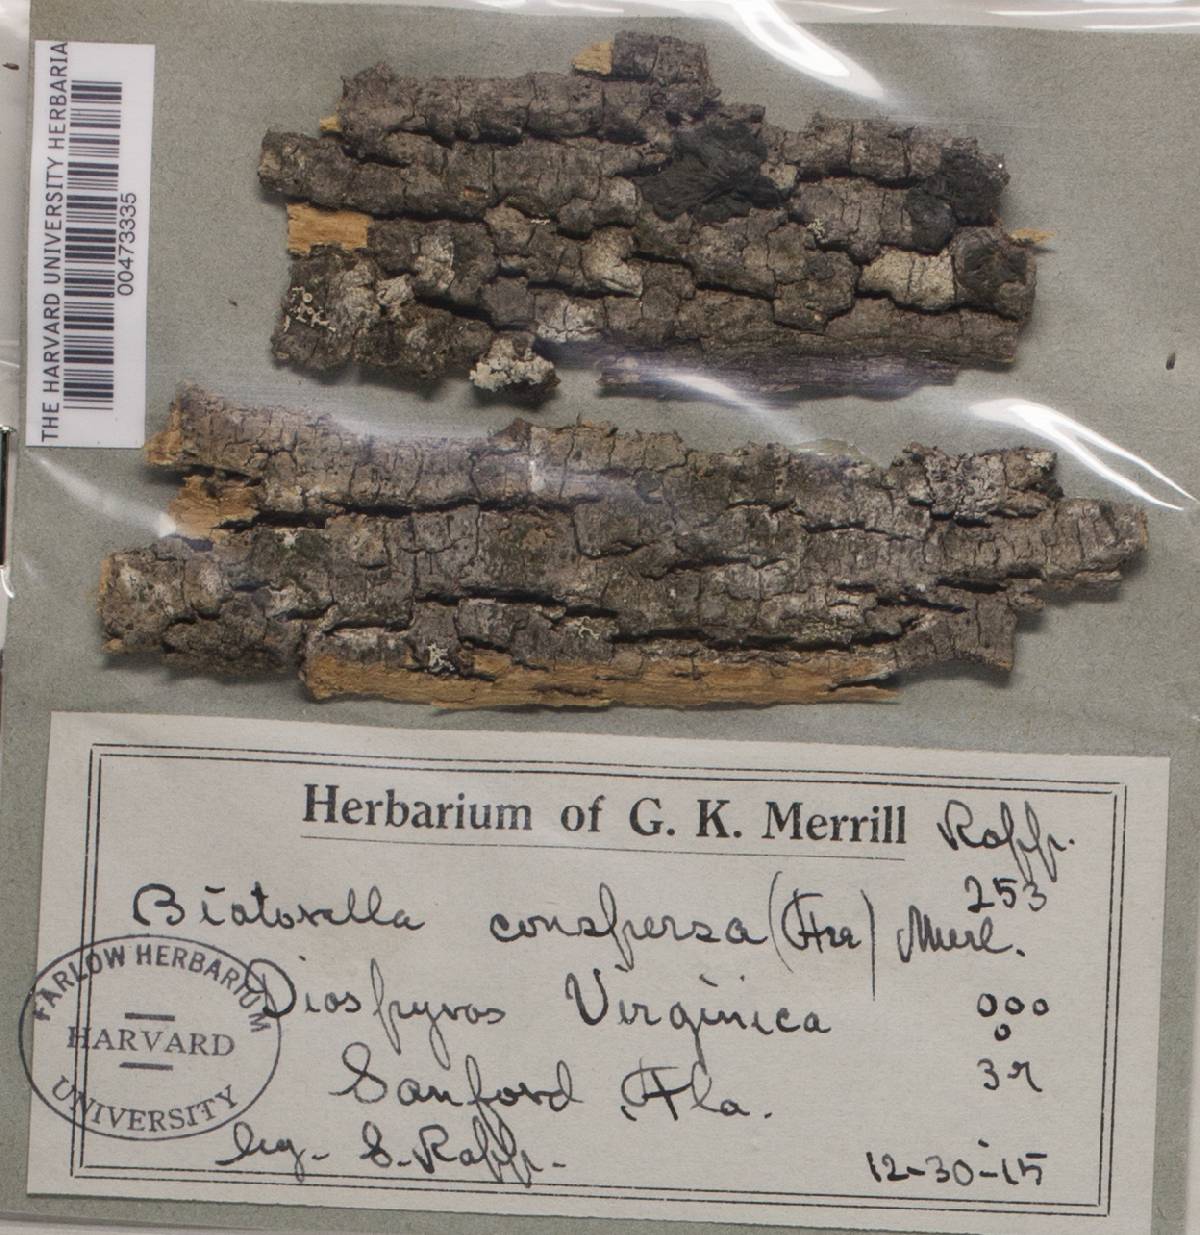 THE HARVARD UNIVERSITY HERBARIA
00473335
Herbarium of G. K. Merrill Rapp.
253
Biatorella conspersa (Fée) Merl.
Diospyros Virginica
Sanford Fla.
leg. S. Rapp.
12-30-15
FARLOW HERBARIUM
HARVARD
UNIVERSITY